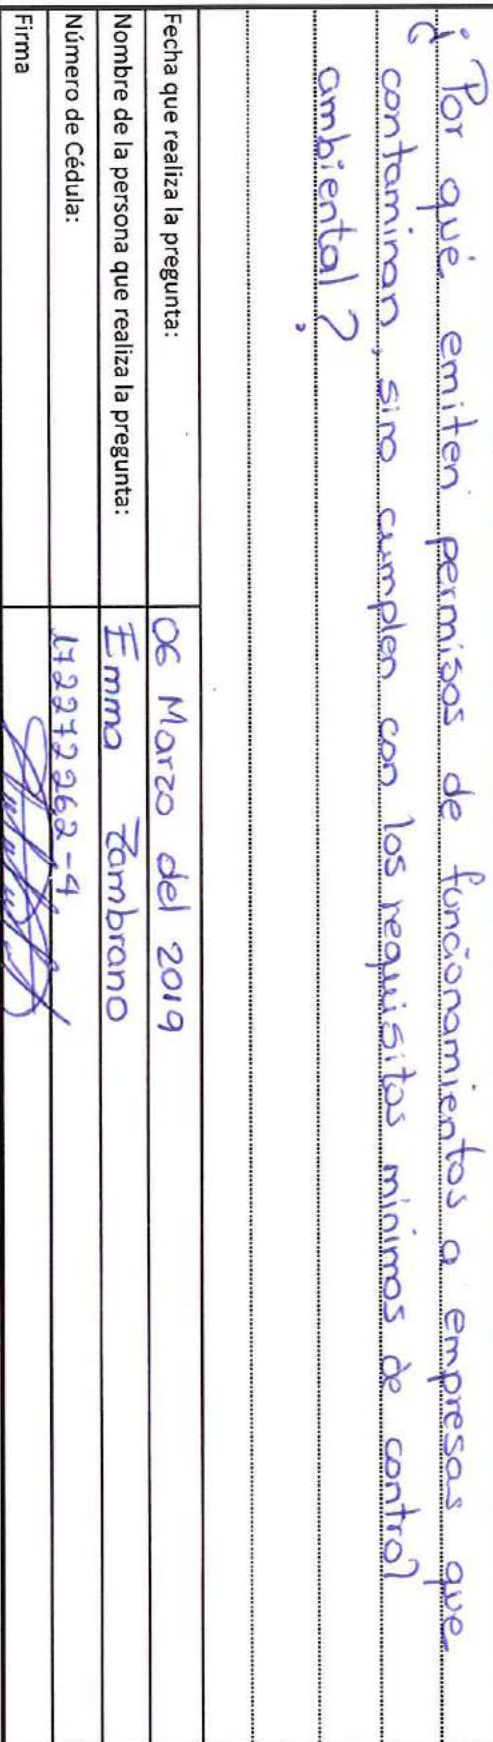 ¿Por qué emiten permisos de funcionamientos a empresas que
contaminan, sino cumplen con los requisitos minimos de control
ambiental?
Fecha que realiza la pregunta: 06 Marzo del 2019
Nombre de la persona que realiza la pregunta: Emma Zambrano
Número de Cédula: 172272262-4
Firma